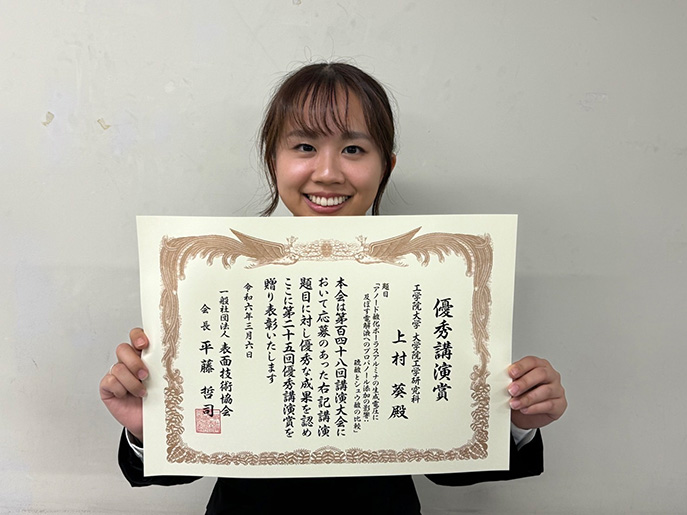 優秀講演賞
工学院大学 大学院工学研究科
上村 葵 殿
題目
「アノード酸化ポーラスアルミナの生成電圧に
及ぼす電解液へのプロパノール添加の影響:
硫酸とシュウ酸の比較」
本会は第百四十八回講演大会に
おいて応募のあった右記講演
題目に対し優秀な成果を認め
ここに第二十五回優秀講演賞を
贈り表彰いたします
令和六年三月六日
一般社団法人 表面技術協会
会長 平藤 哲司